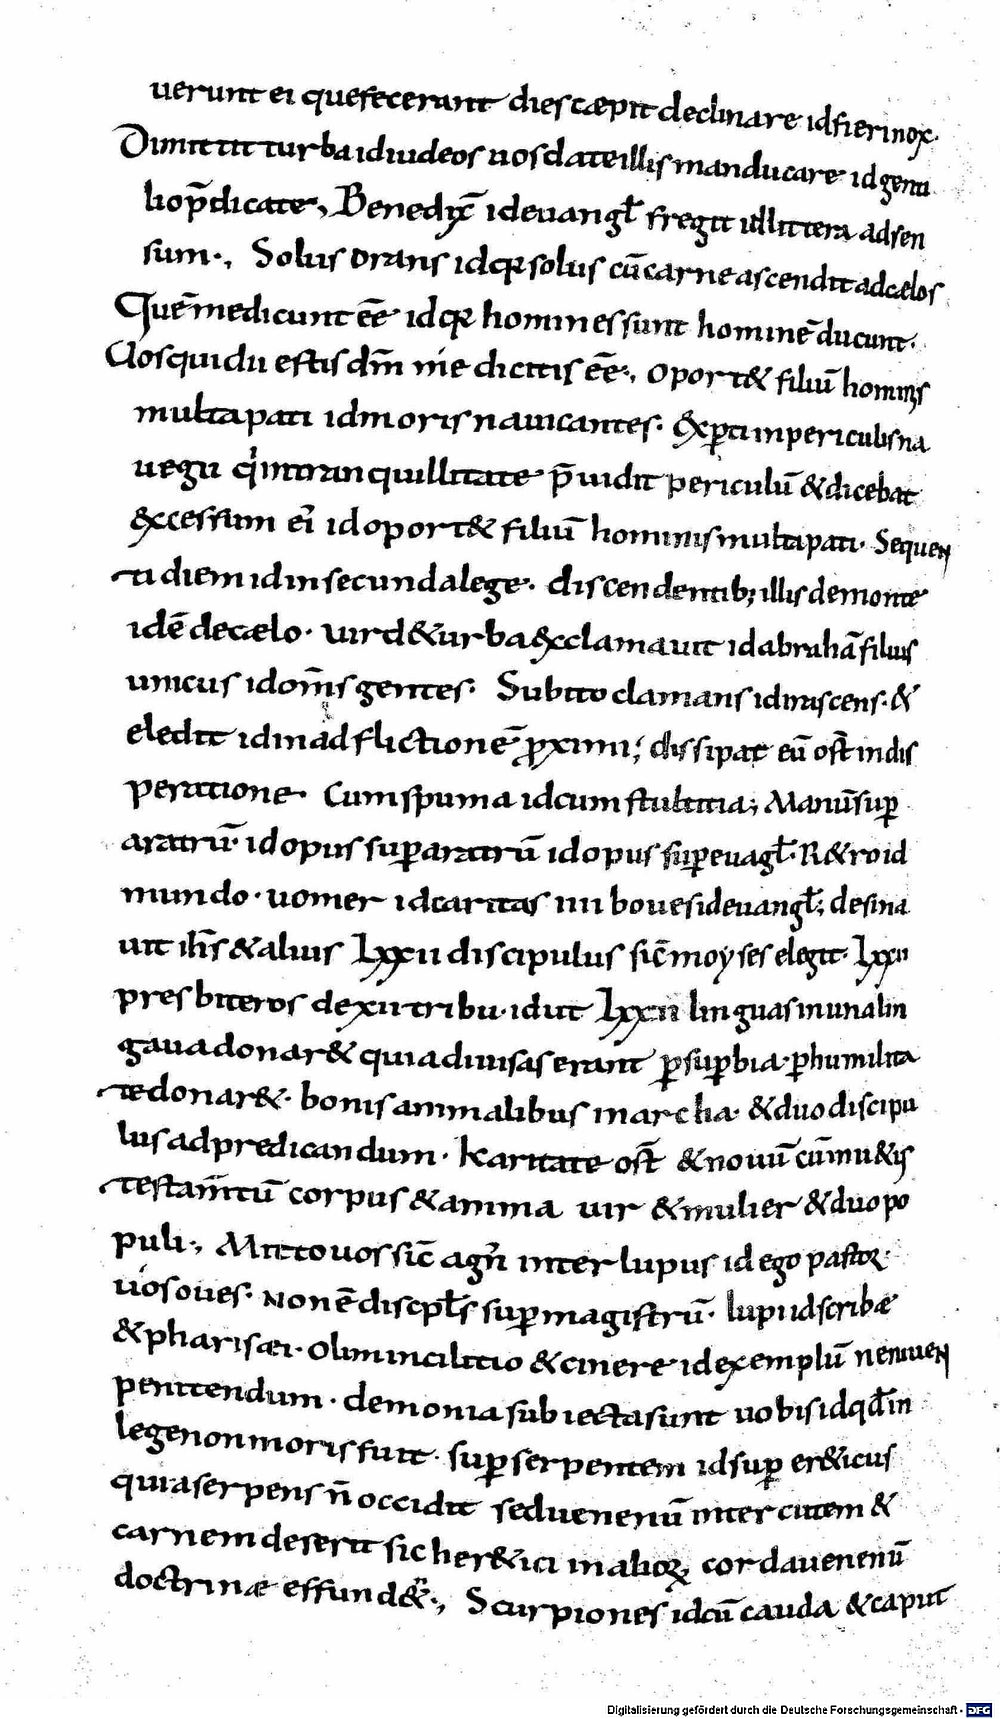 uerunt ei quefecerant dies cæpit declinare id fieri nox·
Dimittit turba id iudeos uos date illis manducare id geniu
lio p̄dicate·, Benedix̄ id euangl̄ fregit id littera ad sen
sum·, Solus orans id qr solus cū carne ascendit ad cælos
Quē me dicunt eē̄ id qr homines sunt hominē ducunt·
Uos qui dii estis dm̄ me dicitis eē̄·, oport& filiū hominis
multa pati id moris nauicantes· &xp̄ti in periculis na
uegii qi in tranquillitate p̄uidit periculū & dicebat
&xcessum ei id oport& filiū hominis multa pati· Sequen
ti diem id in secunda lege· discendentib; illis de monte
idē de cælo· uir d& urba &xclamauit id abrahā filius
unicus id om̄s gentes· Subito clamans id irascens·&
eledit id in adflictionē pxximi; dissipat eū ost̄ in dis
peratione· Cum spuma id cum stultitia; Manū sup
aratrū· id opus sup aratrū id opus sup euagl̄· R&ro id
mundo· uomer id caritas iiii boues id euangl̄; desina
uit ih̄s & alius lxxii discipulus sic̄ moyses elegit· lxxii
presbiteros de xii tribu· id ut lxxii linguas in una lin
gaua donar& quia diuisas erant p sup bia· p humilita
te donar&· bonis animalibus in archa· & duo discipu
lus ad predicandum· karitate ost̄ & nouū cū mu&is
testam̄tū corpus & anima uir & mulier & duo po
puli·, Mitto uos sic̄ agn̄ inter lupus id ego pastor·
uos oues· non ē discpl̄s sup magistrū· lupi id scribæ
& pharisæi· olim in cilitio & cinere id exemplū neniuen
penitendum· demonia subiecta sunt uobis id qd̄ in
lege non moris fuit· sup serpentem id sup er&icus
quia serpens n̄ occidit sed uenenū inter cutem &
carnem deserit sic her&ici in alior, corda uenenū
doctrinæ effund&·, Scurpiones id cū cauda & caput
Digitalisierung gefördert durch die Deutsche Forschungsgemeinschaft - DFG